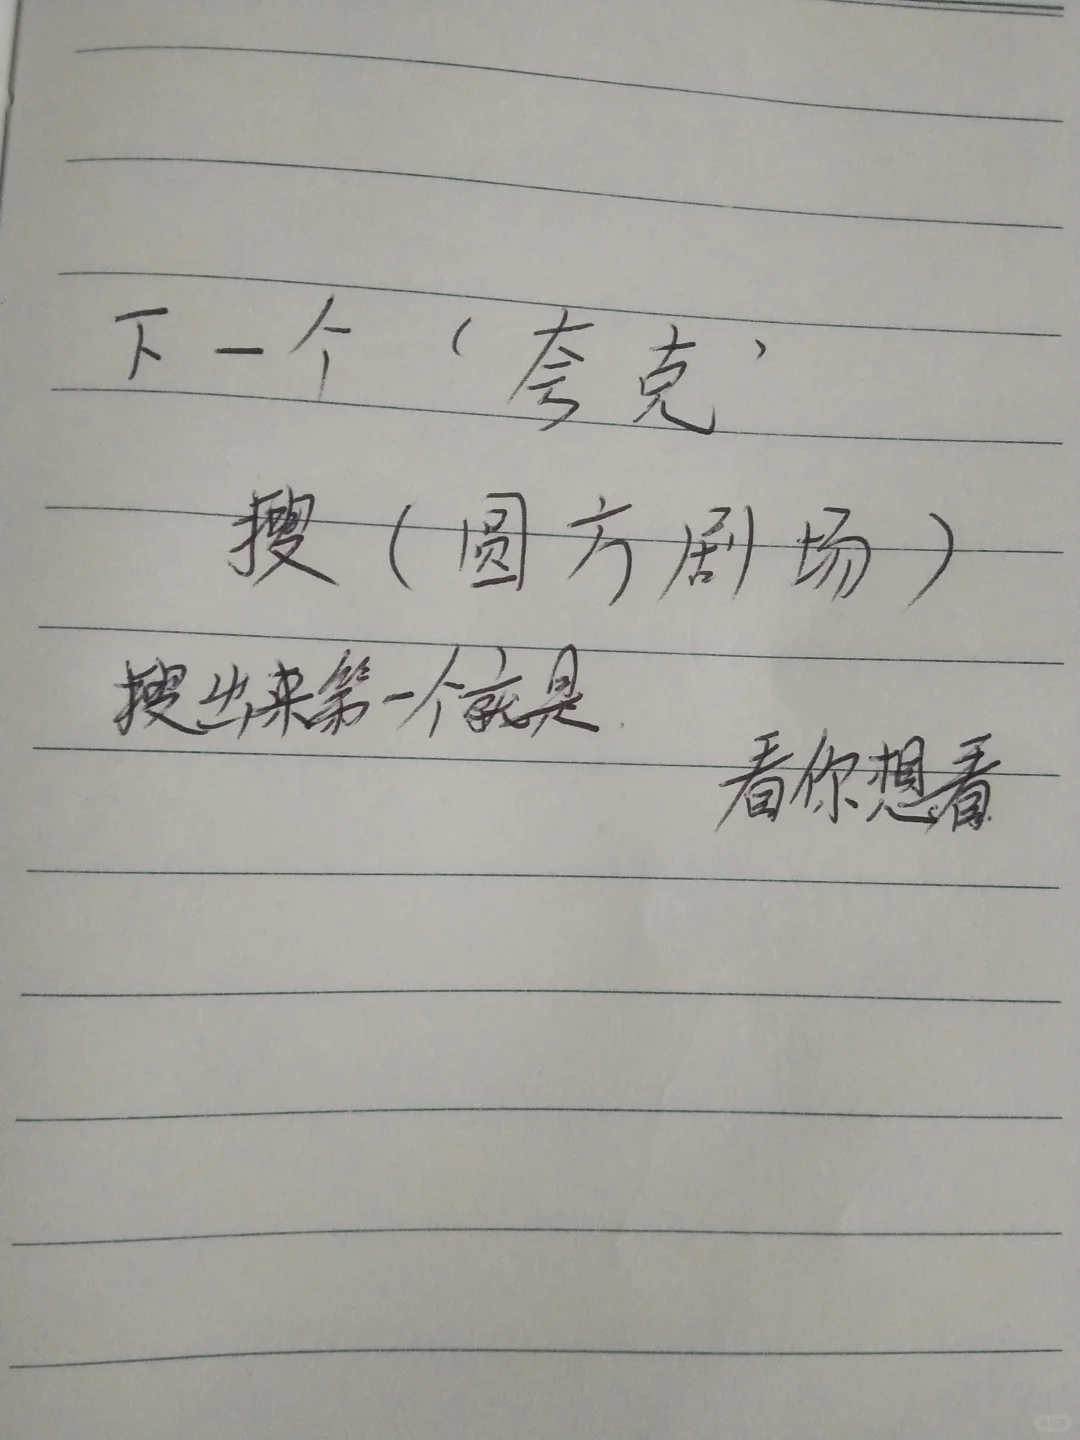 下一个（夸克）
搜（圆方剧场）
搜出来第一个就是
看你想看